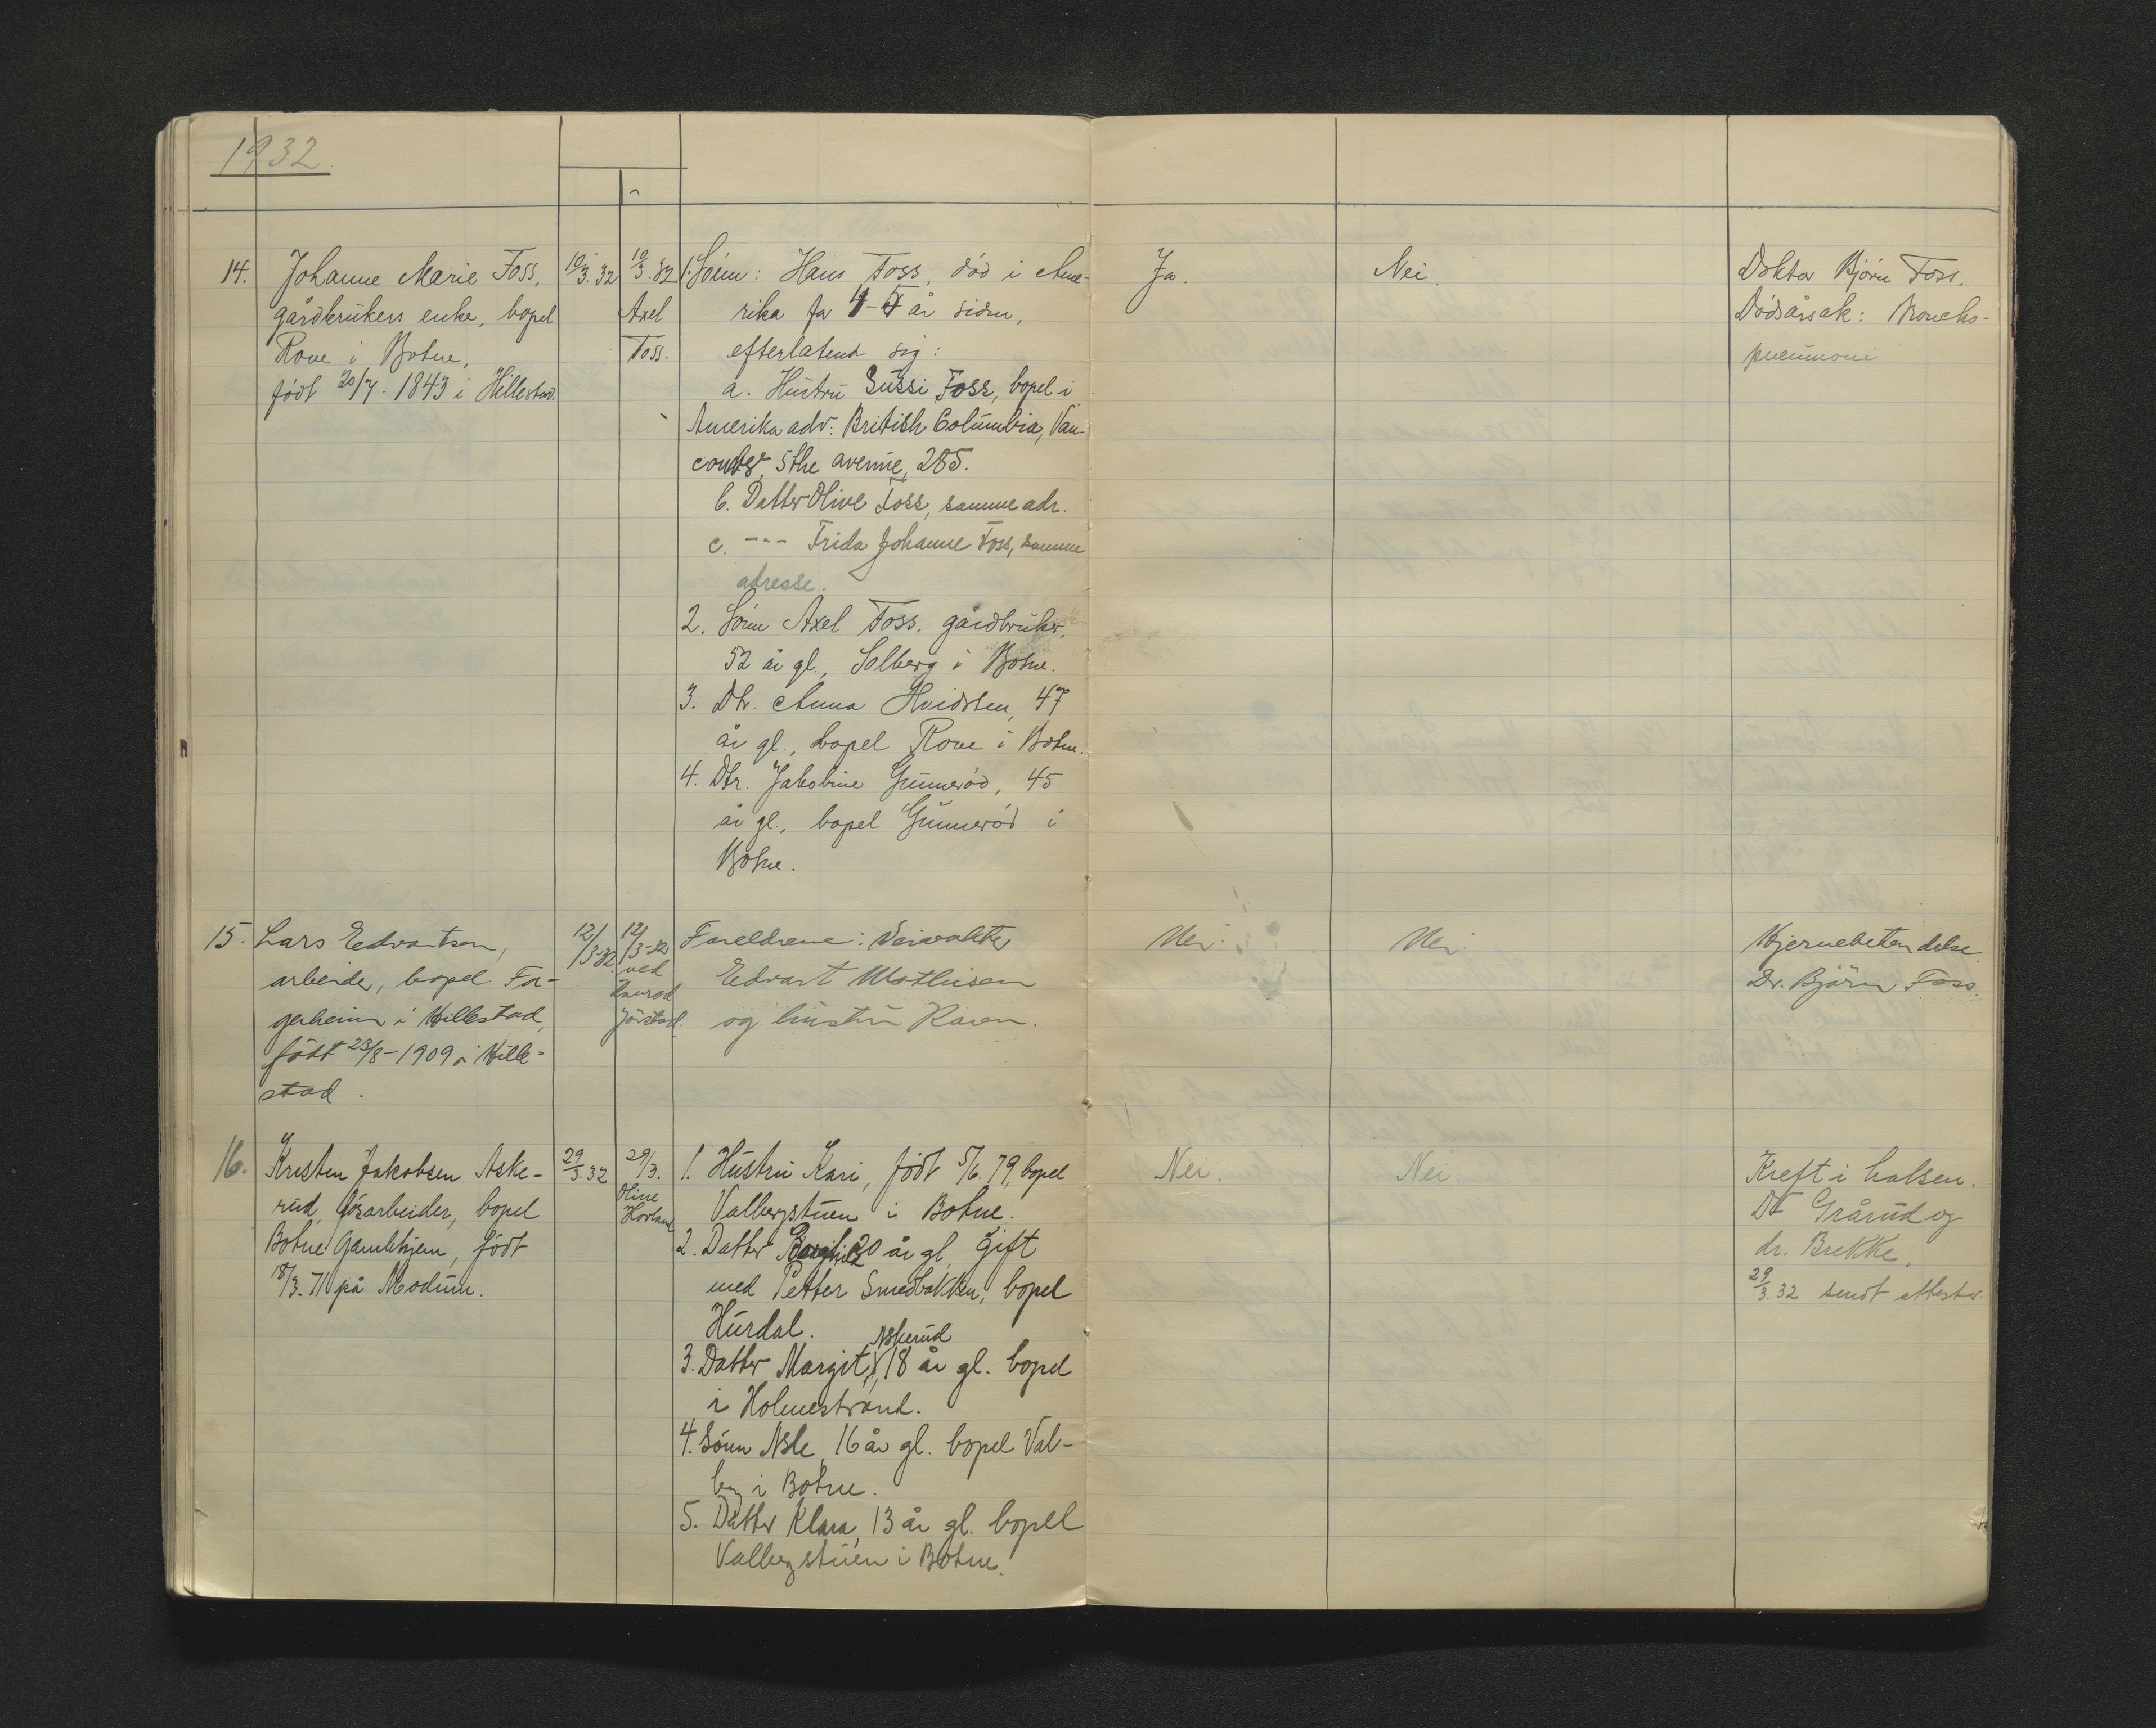 1932
14. Johanne Marie Foss,
gårdbrukers enke, bopel
Rove i Botne,
født 20/7. 1843 i Hillestad.
10/3. 32
10/3. 32
Axel
Foss.
1. Sönn: Hans Foss, død i Ame-
rika for 4-5 år siden,
efterlatend sig:
a. Hustru Sussi Foss, bopel i
Amerika adr: British Columbia, Van-
couver 5the avenue, 285.
b. Datter Olive Foss, samme adr.
c. --- Frida Johanne Foss, samme
adresse.
2. Sönn Axel Foss. gårdbruker,
52 år gl., Solberg i Botne.
3. Dtr. Anna Hvidsten, 47
år gl., bopel Rove i Botne.
4. Dtr. Jakobine Gunnerød, 45
år gl., bopel Gunnerød i
Botne.
Ja.
Nei.
Doktor Bjørn Foss.
Dødsårsak: Broncho-
pneumoni
15. Lars Edvartsen,
arbeider, bopel Fa-
gerheim i Hillestad,
født 23/8-1909 i Hille-
stad.
12/3-32
12/3-32
ved
Jörstad.
Foreldrene: Veivokter
Edvart Mathisen
og hustru Karen.
Nei.
Nei.
Hjernebetendelse
Dr. Björn Foss.
16. Kristen Jakobsen Aske-
rud, løsarbeider, bopel
Botne Gamlehjem, født
18/3. 71 på Modum.
29/3. 32
29/3.
Oline
Hovland
1. Hustru Kari, født 5/6. 79, bopel
Valbergstuen i Botne.
2. Datter Borghild 20 år gl, gift
med Petter Smedbakken, bopel
Hurdal.
Askerud
3. Datter Margit, 18 år gl. bopel
i Holmestrand.
4. Sönn Asle, 16 år gl. bopel Val-
by i Botne.
5. Datter Klara, 13 år gl. bopel
Valbergstuen i Botne.
Nei.
Nei.
Kreft i halsen.
Dr Grårud og
dr. Brekke.
29/3. 32 sendt attester.